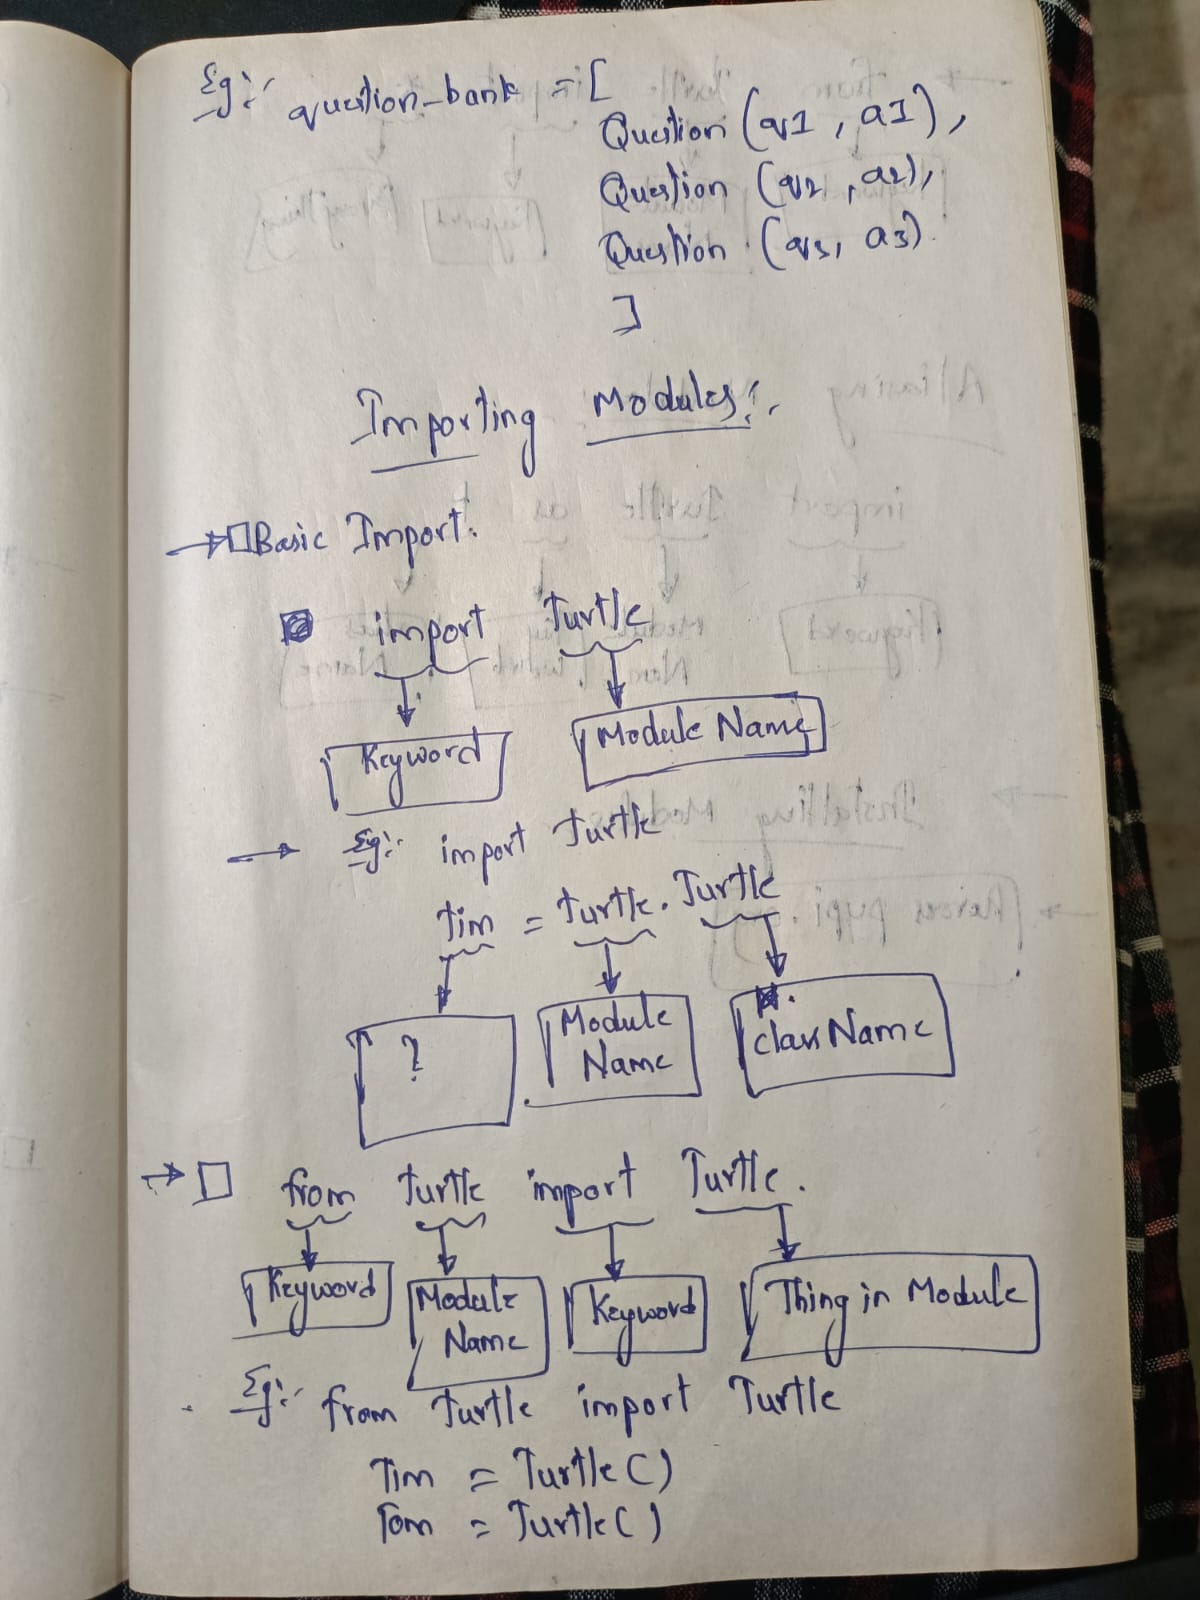 Eg:- question_bank = [
Question (q1, a1),
Question (q2, a2),
Question (q3, a3).
]
Importing Modules:-
→ □ Basic Import.
import turtle
Keyword Module Name
→ Eg:- import turtle
tim = turtle. Turtle
? Module Name class Name
→ □ from turtle import Turtle.
Keyword Module Name Keyword Thing in Module
Eg:- from turtle import Turtle
Tim = Turtle()
Tom = Turtle()